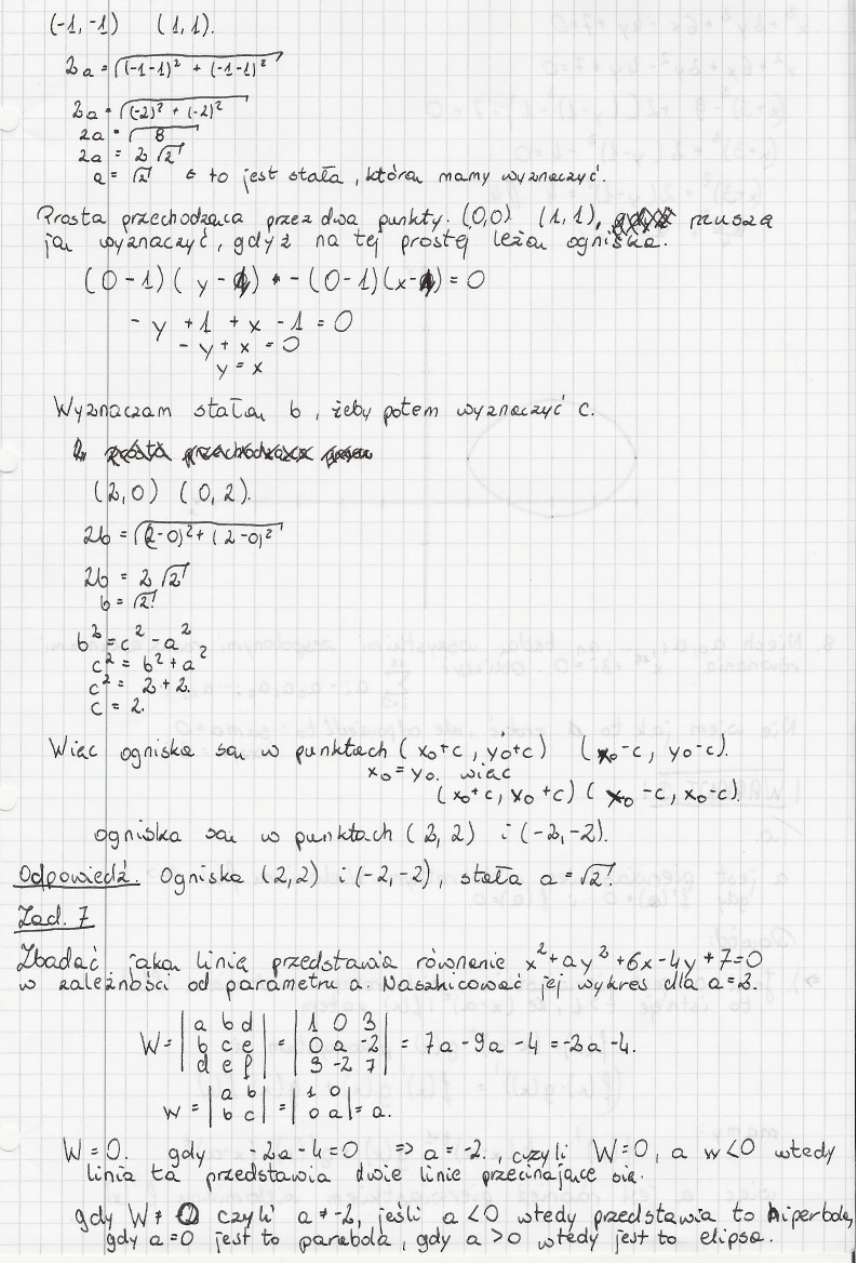 (-1,-1) (1,1).
2a = √((-1-1)² + (-1-1)²)
2a = √((-2)² + (-2)²)
2a = √8
2a = 2√2
a = √2 ← to jest stała, którą mamy wyznaczyć.
Prosta przechodząca przez dwa punkty. (0,0) (1,1), muszą
ją wyznaczyć, gdyż na tej prostej leżą ogniska.
(0-1)(y-1) - (0-1)(x-1) = 0
-y + 1 + x - 1 = 0
-y + x = 0
y = x
Wyznaczam stałą b, żeby potem wyznaczyć c.
(2,0) (0,2).
2b = √((2-0)² + (2-0)²)
2b = 2√2
b = √2
b² = c² - a²
c² = b² + a²
c² = 2 + 2.
c = 2.
Więc ogniska są w punktach (x₀+c, y₀+c) (x₀-c, y₀-c).
x₀ = y₀. więc
(x₀+c, x₀+c) (x₀-c, x₀-c).
ogniska są w punktach (2, 2) i (-2,-2).
Odpowiedź. Ogniska (2,2) i (-2,-2), stała a = √2.
Zad. 7
Zbadać, jaką linię przedstawia równanie x² + ay² + 6x - 4y + 7 = 0
w zależności od parametru a. Naszkicować jej wykres dla a = 2.
W = |a b d| = |1 0 3|
|b c e| |0 a -2| = 7a - 9a - 4 = -2a - 4.
|d e f| |3 -2 7|
w = |a b| = |1 0| = a.
|b c| |0 a|
W = 0. gdy -2a - 4 = 0 => a = -2., czyli W = 0, a w < 0 wtedy
linia ta przedstawia dwie linie przecinające się.
gdy W ≠ 0 czyli a ≠ -2, jeśli a < 0 wtedy przedstawia to hiperbolę,
gdy a = 0 jest to parabola, gdy a > 0 wtedy jest to elipsa.